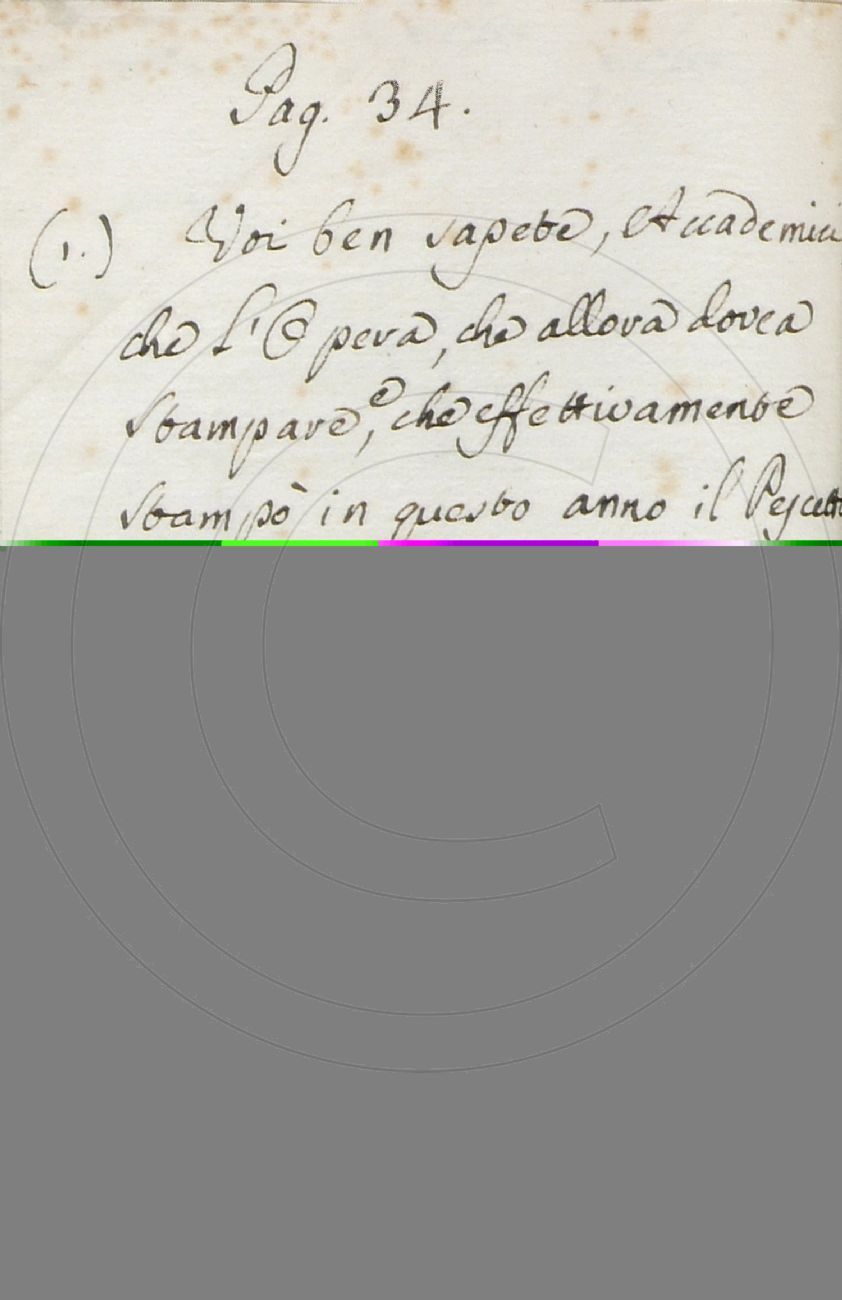 Pag. 34.
(1.) Voi ben sapete, Accademici
che l'Opera, che allora dovea
stampare, e che effettivamente
stampò in questo anno il